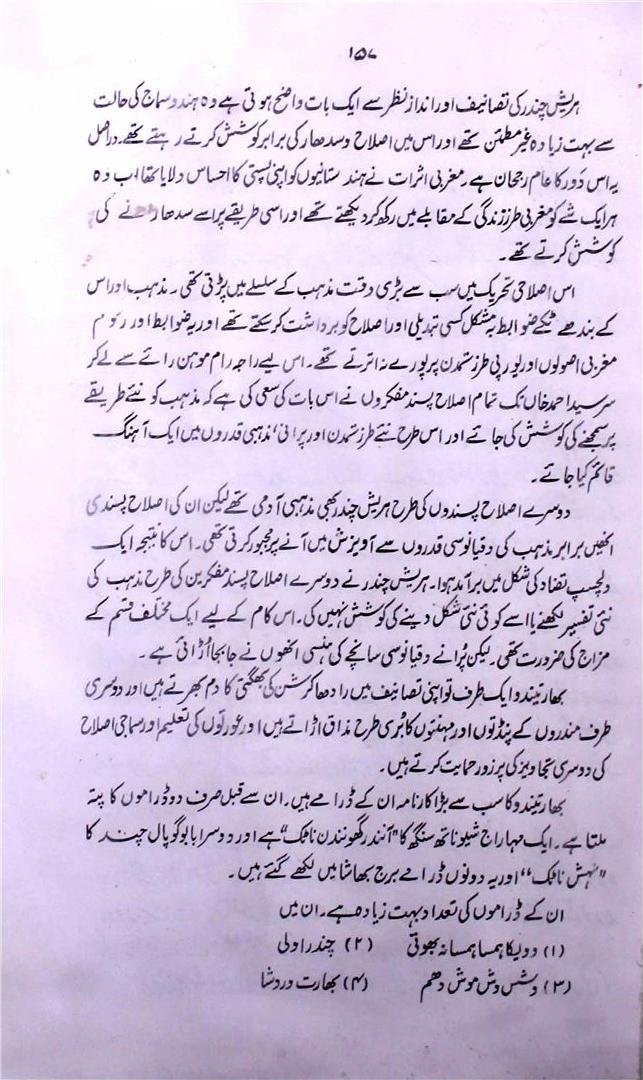 ۱۵۷
ہریش چندر کی تصانیف اور انداز نظر سے ایک بات واضح ہوتی ہے وہ ہندو سماج کی حالت
سے بہت زیادہ غیر مطمئن تھے اور اس میں اصلاح و سدھار کی برابر کوشش کرتے رہتے تھے۔ دراصل
یہ اس دَور کا عام رجحان ہے۔ مغربی اثرات نے ہندستانیوں کو اپنی پستی کا احساس دلایا تھا اب وہ
ہر ایک شے کو مغربی طرز زندگی کے مقابلے میں رکھ کر دیکھتے تھے اور اسی طریقے پر اسے سدھارنے کی
کوشش کرتے تھے۔
اس اصلاحی تحریک میں سب سے بڑی دقت مذہب کے سلسلے میں پڑتی تھی۔ مذہب اور اس
کے بندھے ٹکے ضوابط بہ مشکل کسی تبدیلی اور اصلاح کو برداشت کر سکتے تھے اور یہ ضوابط اور رسوم
مغربی اصولوں اور یورپی طرز تمدن پر پورے نہ اترتے تھے۔ اس لیے راجہ رام موہن رائے سے لے کر
سر سید احمد خاں تک تمام اصلاح پسند مفکروں نے اس بات کی سعی کی ہے کہ مذہب کو نئے طریقے
پر سمجھنے کی کوشش کی جائے اور اس طرح نئے طرز تمدن اور پرانی، مذہبی قدروں میں ایک آہنگ
قائم کیا جائے۔
دوسرے اصلاح پسندوں کی طرح ہریش چندر بھی مذہبی آدمی تھے لیکن ان کی اصلاح پسندی
انھیں برابر مذہب کی دقیانوسی قدروں سے آویزش میں آنے پر مجبور کرتی تھی۔ اس کا نتیجہ ایک
دلچسپ تضاد کی شکل میں برآمد ہوا۔ ہریش چندر نے دوسرے اصلاح پسند مفکرین کی طرح مذہب کی
نئی تفسیر لکھنے یا اسے کوئی نئی شکل دینے کی کوشش نہیں کی۔ اس کام کے لیے ایک مختلف قسم کے
مزاج کی ضرورت تھی۔ لیکن پُرانے دقیانوسی سانچے کی ہنسی انھوں نے جا بجا اُڑائی ہے۔
بھارتیندو ایک طرف تو اپنی تصانیف میں رادھا کرشن کی بھگتی کا دم بھرتے ہیں اور دوسری
طرف مندروں کے پنڈتوں اور مہنتوں کا بُری طرح مذاق اڑاتے ہیں اور عورتوں کی تعلیم اور سماجی اصلاح
کی دوسری تجاویز کی پر زور حمایت کرتے ہیں۔
بھارتیندو کا سب سے بڑا کارنامہ ان کے ڈرامے ہیں۔ ان سے قبل صرف دو ڈراموں کا پتہ
ملتا ہے۔ ایک مہاراج شیوناتھ سنگھ کا "آنند رگھونندن ناٹک" ہے اور دوسرا بابو گوپال چند کا
"نہش ناٹک" اور یہ دونوں ڈرامے برج بھاشا میں لکھے گئے ہیں۔
ان کے ڈراموں کی تعداد بہت زیادہ ہے۔ ان میں
(۱) وویکا ہمسا ہمسا نہ بھوتی (۲) چندراولی
(۳) وشس وش موش دھم (۴) بھارت وردشا